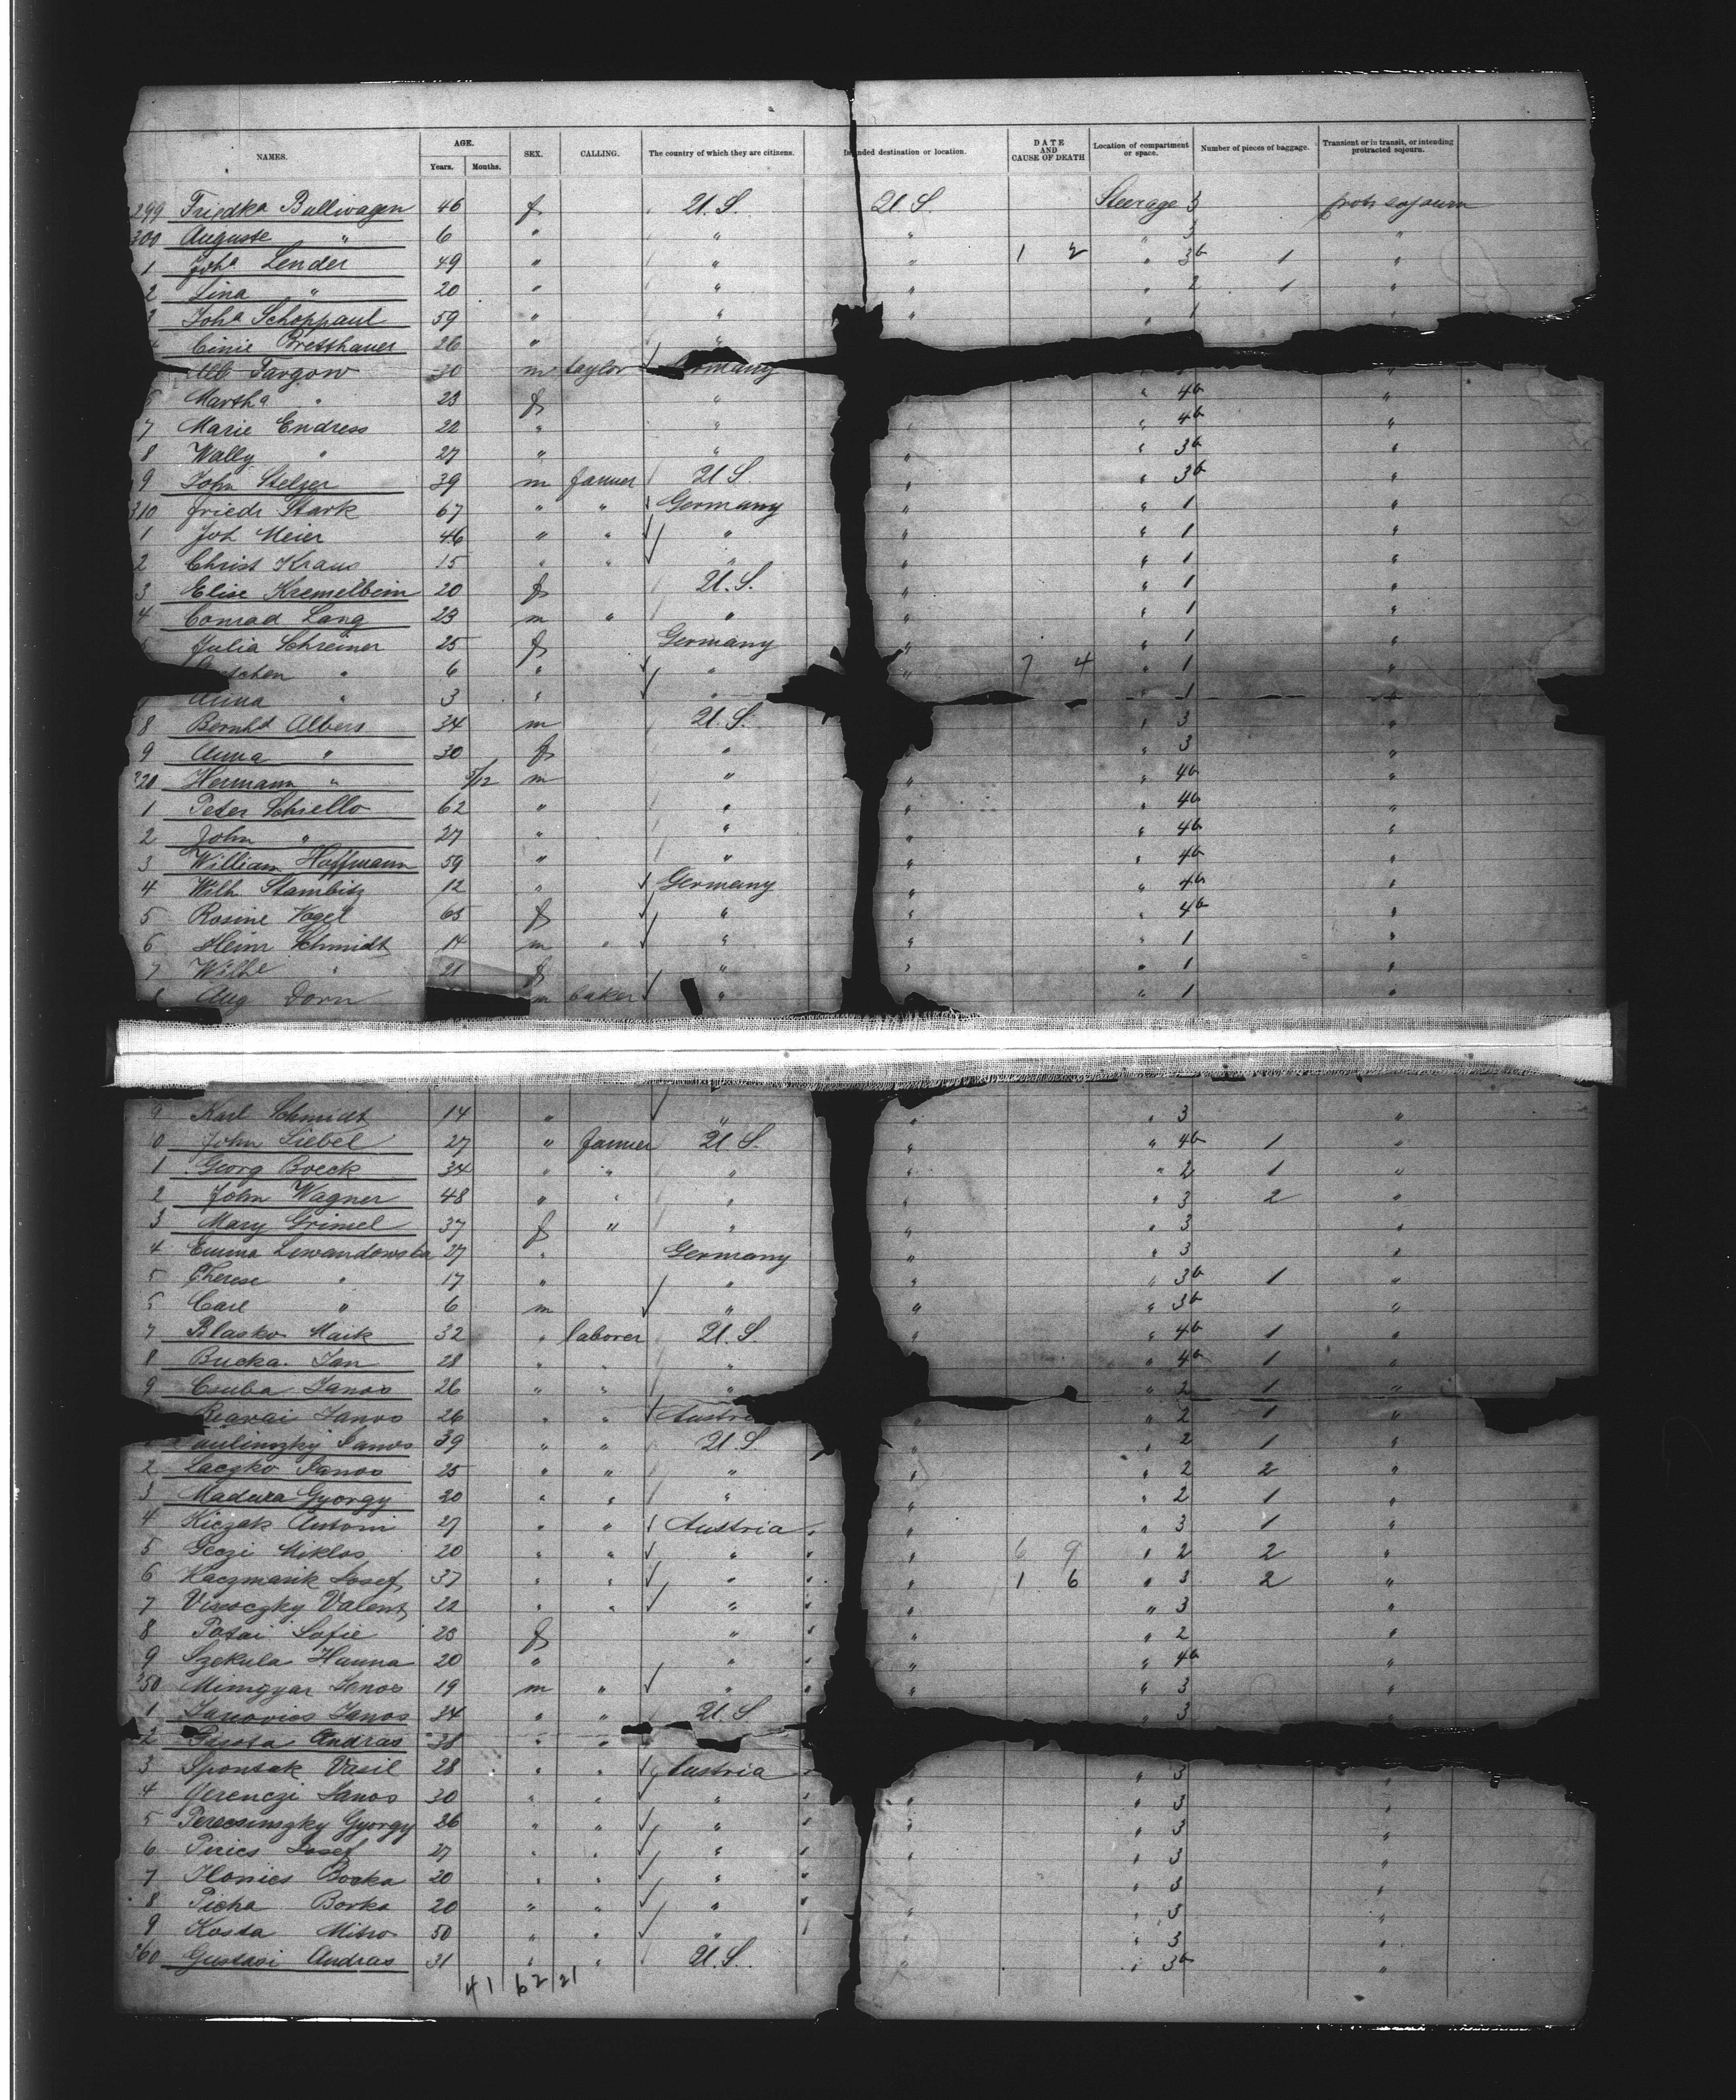 NAMES. AGE. Years. Months. SEX. CALLING. The country of which they are citizens. Intended destination or location. DATE AND CAUSE OF DEATH Location of compartment or space. Number of pieces of baggage. Transient or in transit, or intending protracted sojourn.
299 Friedka Bullwagen 46 f U.S. U.S. Steerage 3 protr sojourn
300 Auguste " 6 " " " " 3 "
1 Joha Lender 49 " " " 1 2 " 3b 1 "
2 Lina " 20 " " " " 2 1 "
Joha Schoppaul 59 " " " " 1 "
Cinie Bretthauer 26 " "
Alb Targow 30 m taylor Germany
6 Martha " 23 f " " 4b "
7 Marie Endress 22 " " " " 4b "
8 Wally " 27 " " " " 3b "
9 John Stelzer 39 m farmer U.S. " " 3b "
310 Friedr Stark 67 " " Germany " " 1 "
1 Joh Meier 46 " " " " " 1 "
2 Christ Kraus 15 " " " " " 1 "
3 Elise Kremelbein 20 f U.S. " " 1 "
4 Conrad Lang 23 m " " " " 1 "
Julia Schreiner 25 f Germany " " 1 "
" 6 " " " 7 4 " 1 "
Anna " 3 " " " 1 "
8 Bernhd Albers 34 m U.S. " 3 "
9 Anna " 30 f " " 3 "
320 Hermann " 5/12 m " " " 4b "
1 Peter Schiello 62 " " " " 4b "
2 John " 27 " " " " 4b "
3 William Hoffmann 59 " " " " 4b "
4 Wilh. Stambitz 12 " Germany " " 4b "
5 Rosine Vogel 65 f " " " 4b "
6 Heinr Schmidt 14 m " " " " 1 "
7 Wilhe " 21 f " " " 1 "
8 Aug Dorn m baker " " 1 "
9 Karl Schmidt 14 " " " " 3 "
0 John Siebel 27 " farmer U.S. " " 4b 1 "
1 Georg Boeck 34 " " " " " 2 1 "
2 John Wagner 48 " " " " " 3 2 "
3 Mary Grimel 37 f " " " " 3 "
4 Emma Lewandowska 27 " Germany " " 3 "
5 Therese " 17 " " " " 3b 1 "
Carl " 6 m " " " 3b "
7 Blasko Maik 32 " laborer U.S. " " 4b 1 "
8 Bucka Jan 28 " " " " 4b 1 "
9 Csuba Janos 26 " " " " 2 1 "
Janos 26 " " Austria " " 2 1 "
Paulinszky Janos 39 " " U.S. " " 2 1 "
2 Laczko Janos 25 " " " " " 2 2 "
3 Madura Gyorgy 20 " " " " " 2 1 "
4 Kiczak Antoni 27 " " Austria " " 3 1 "
5 Geczi Miklos 20 " " " " 6 9 " 2 2 "
6 Kaczmarik Josef 37 " " " " 1 6 " 3 2 "
7 Visoczky Valent 22 " " " " " 3 "
8 Patai Sofie 23 f " " " 2 "
9 Szekula Hanna 20 " " " " 4b "
350 Janos 19 m " " " " 3 "
1 Janovics Janos 34 " " U.S. " 3
2 Andras 38 " "
3 Spontak Vasil 28 " " Austria " " 3 "
4 Ferenczi Janos 30 " " " " " 3 "
5 Gyorgy 26 " " " " " 3 "
6 Pirics Josef 27 " " " " " 3 "
7 Ilonics Borka 20 " " " " 3 "
8 Picha Borka 20 " " " " " 3 "
9 Kosta Mitro 50 " " " " " 3 "
360 Gustasi Andras 31 " " U.S. " " 3b "
41 62 21